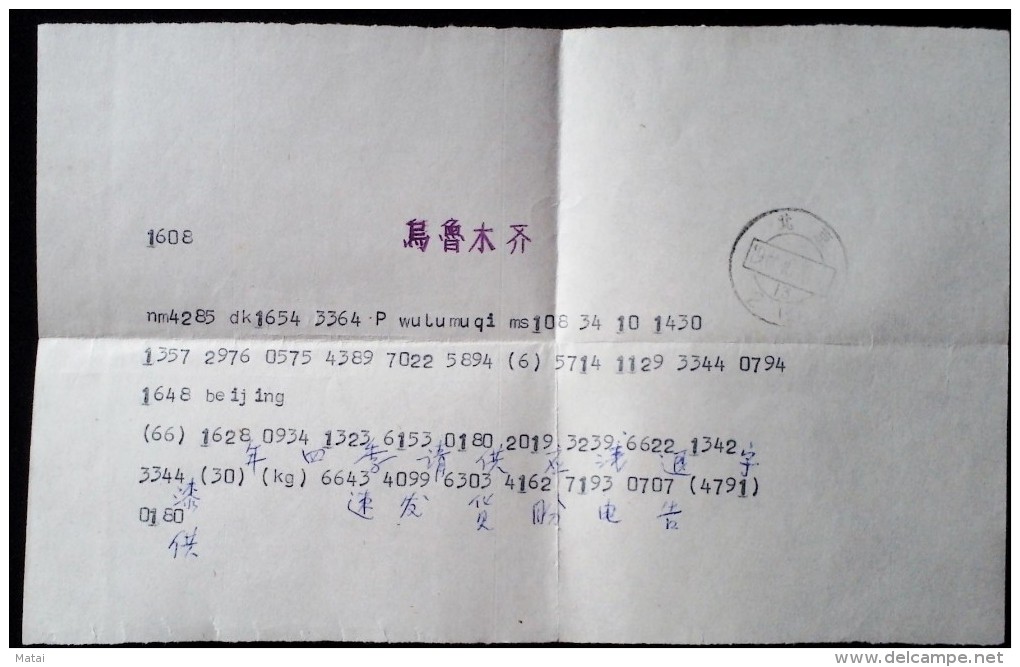 1608 烏魯木齐
北京
nm4285 dk1654 3364 P wulumuqi ms108 34 10 1430
1357 2976 0575 4389 7022 5894 (6) 5714 1129 3344 0794
1648 beijing
(66) 1628 0934 1323 6153 0180 2019 3239 6622 1342
年 四 季 请 供 应 浅 通
3344 (30) (kg) 6643 4099 6303 4162 7193 0707 (4791)
漆 速 发 货 盼 电 告
0180
供
Matai
delcampe.net